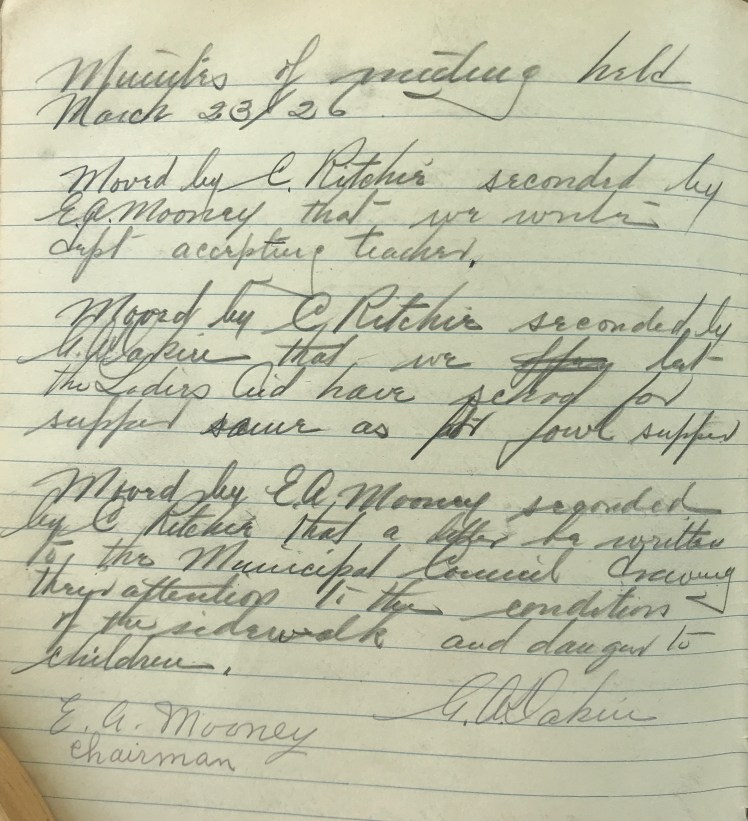 Minutes of meeting held
March 23/26
Moved by C. Ritchie seconded by
E.A. Mooney that we write
dept accepting teacher.
Moved by C Ritchie seconded by
G. A. Dakin that we let
the Ladies Aid have school for
supper same as for fowl supper
Moved by E.A Mooney seconded
by C Ritchie that a letter be written
to the Municipal Council drawing
their attention to the condition
of the sidewalk and danger to
children.
G. A. Dakin
E. A. Mooney
Chairman